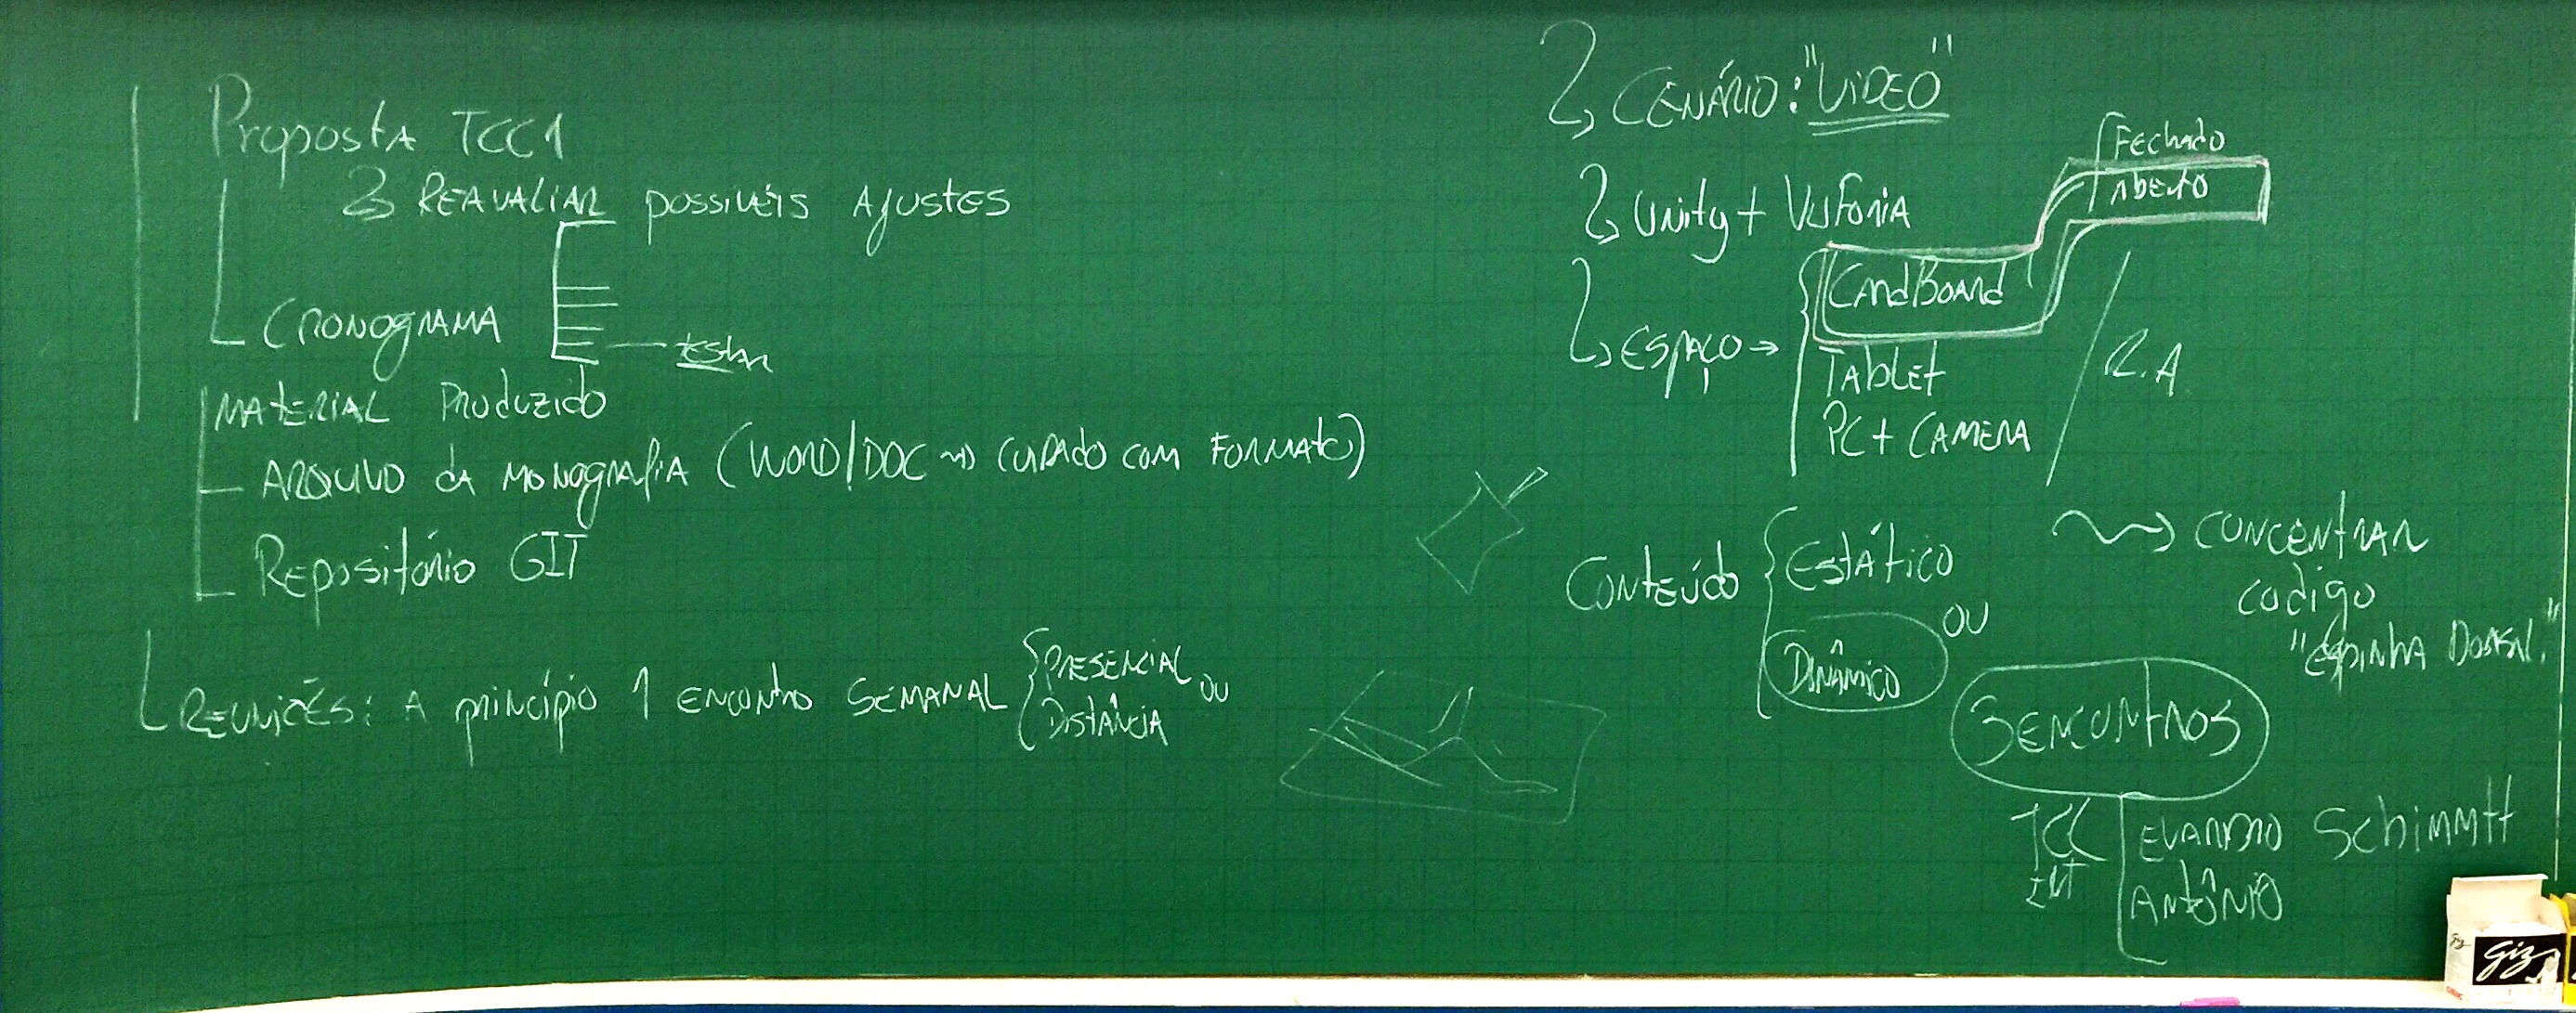 Proposta TCC1
REAVALIAR possívEis AJUSTES
CRONOGRAMA
testar
MATERIAL PRoduzido
ARQUIVO da MONOGRAfiA (WORD/DOC CUIDADO COM FORMATO)
REpositório GIT
REUNIÕES: A princípio 1 ENCONTRO SEMANAL
PRESENCIAL OU
DISTÂNCIA
CENÁRIO: "VIDEO"
Unity + VUFORIA
ESPAÇO →
Fechado
AbERtO
CARdBOARd
TAblEt
PC + CAMERA
R.A
CONTEÚDO
EStÁtiCO
OU
DINÂMICO
CONCENTRAR
codigo
"ESPINHA DORSAL"
3 ENCONTROS
TCC
EVANDRO SchiMMtt
ANTÔNIO
Giz